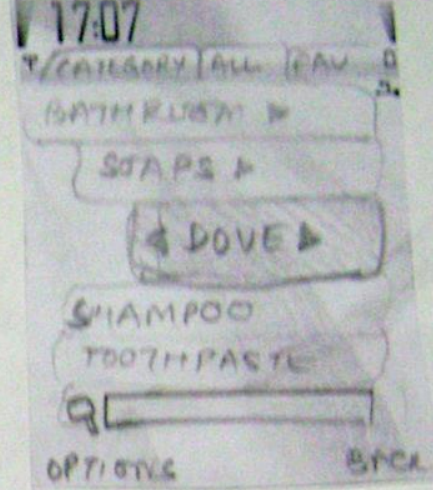 17:07
CATEGORY ALL FAV
BATHROOM
SOAPS
DOVE
SHAMPOO
TOOTHPASTE
OPTIONS BACK